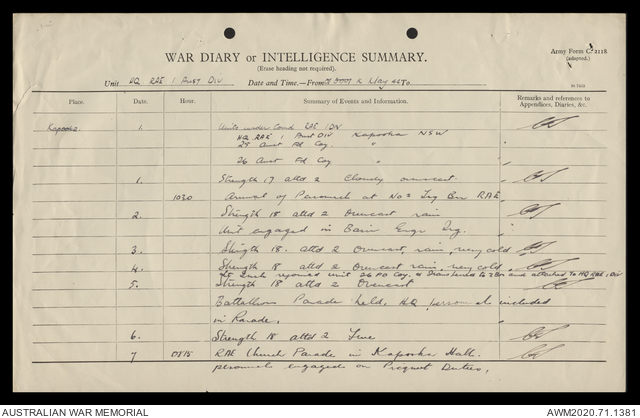 Army Form C. 2118
(adapted.)
WAR DIARY or INTELLIGENCE SUMMARY.
(Erase heading not required).
Unit HQ RAE 1 Aust Div Date and Time.—From May 44 To
Place. Date. Hour. Summary of Events and Information. Remarks and references to Appendices, Diaries, &c.
Kapooka. 1. Units under Comd RAE 1 DIV
HQ RAE 1 Aust Div Kapooka NSW
29 Aust Fd Coy. "
26 Aust Fd Coy "
1. Strength 17 attd 2 Cloudy overcast
1030 Arrival of Personnel at No 2 Trg Bn RAE
2. Strength 18 attd 2 Overcast rain
Unit engaged in Basic Engr Trg.
3. Strength 18. attd 2 Overcast, rain, very cold
4. Strength 18 attd 2 Overcast rain, very cold
unit 26 FD Coy, & and attached to HQ RAE 1 Div
5. Strength 18 attd 2 Overcast
Battalion Parade held, HQ personnel included
in Parade.
6. Strength 18 attd 2 Fine
7 0815 RAE Church Parade in Kapooka Hall.
personnel engaged on Picquet Duties.
AUSTRALIAN WAR MEMORIAL
AWM2020.71.1381